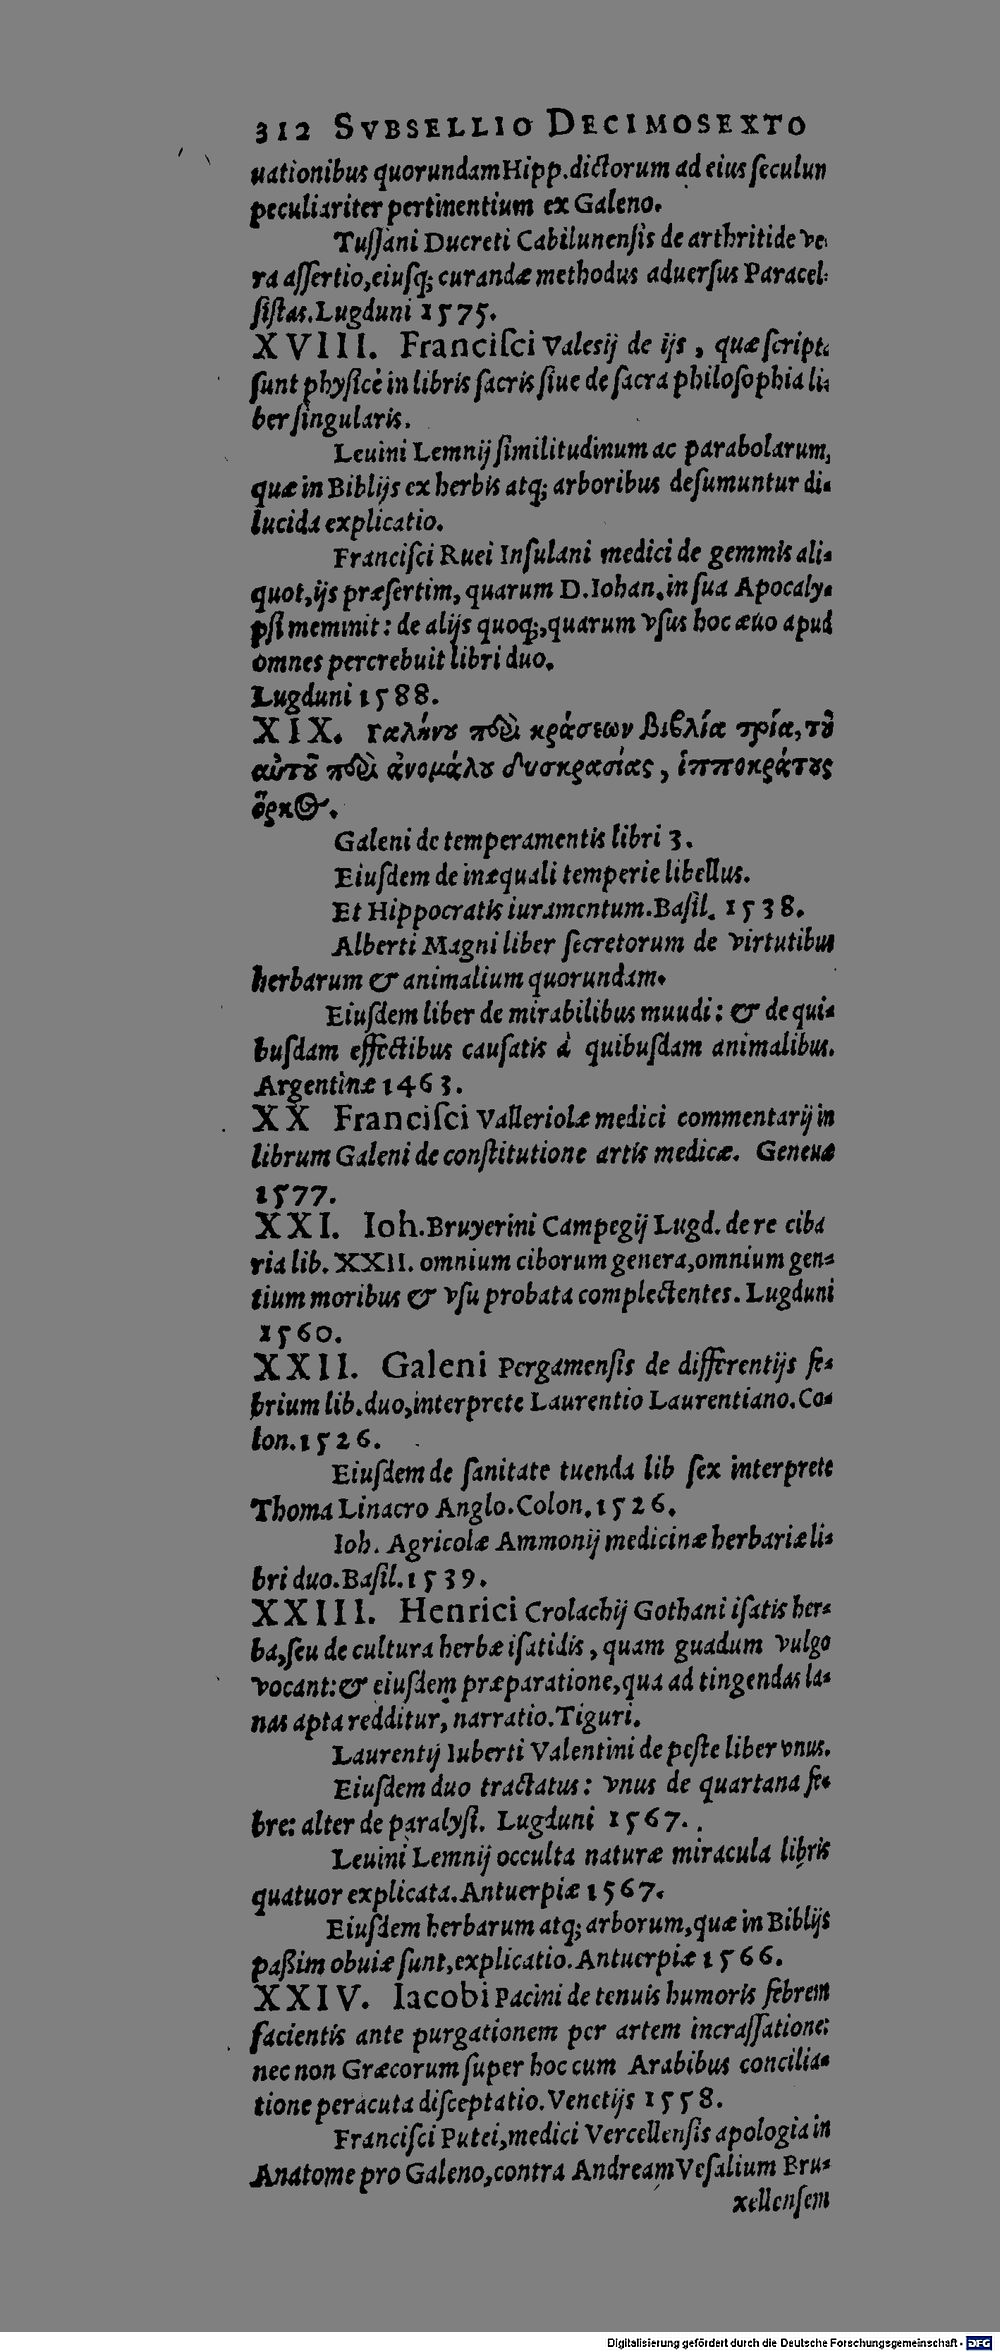 312 SVBSELLIO DECIMOSEXTO
uationibus quorundam Hipp. dictorum ad eius seculun
peculiariter pertinentium ex Galeno.
Tussani Ducreti Cabilunensis de arthritide ve
ra assertio, eiusq; curandæ methodus aduersus Paracel-
sistas. Lugduni 1575.
XVIII. Francisci Valesij de ijs, quæ script
sunt physicè in libris sacris siue de sacra philosophia li-
ber singularis.
Leuini Lemnij similitudinum ac parabolarum,
quæ in Biblijs ex herbis atq; arboribus desumuntur di-
lucida explicatio.
Francisci Ruei Insulani medici de gemmis ali-
quot, ijs præsertim, quarum D. Iohan. in sua Apocaly-
psi meminit: de alijs quoq;, quarum vsus hoc æuo apud
omnes percrebuit libri duo.
Lugduni 1588.
XIX. Γαλήνου περὶ κράσεων βιβλία τρία, τοῦ
αὐτοῦ περὶ ἀνομάλου δυσκρασίας, ἱπποκράτους
ὅρκος.
Galeni de temperamentis libri 3.
Eiusdem de inæquali temperie libellus.
Et Hippocratis iuramentum. Basil. 1538.
Alberti Magni liber secretorum de virtutibus
herbarum & animalium quorundam.
Eiusdem liber de mirabilibus muudi: & de qui-
busdam effectibus causatis à quibusdam animalibus.
Argentinæ 1463.
XX Francisci Valleriolæ medici commentarij in
librum Galeni de constitutione artis medicæ. Geneuæ
1577.
XXI. Ioh. Bruyerini Campegij Lugd. de re ciba
ria lib. XXII. omnium ciborum genera, omnium gen-
tium moribus & vsu probata complectentes. Lugduni
1560.
XXII. Galeni Pergamensis de differentijs fe-
brium lib. duo, interprete Laurentio Laurentiano. Co-
lon. 1526.
Eiusdem de sanitate tuenda lib sex interprete
Thoma Linacro Anglo. Colon. 1526.
Ioh. Agricolæ Ammonij medicinæ herbariæ li-
bri duo. Basil. 1539.
XXIII. Henrici Crolachij Gothani isatis her-
ba, seu de cultura herbæ isatidis, quam guadum vulgo
vocant: & eiusdem præparatione, qua ad tingendas la-
nas apta redditur, narratio. Tiguri.
Laurentij Iuberti Valentini de peste liber vnus.
Eiusdem duo tractatus: vnus de quartana fe-
bre: alter de paralysi. Lugduni 1567.
Leuini Lemnij occulta naturæ miracula libris
quatuor explicata. Antuerpiæ 1567.
Eiusdem herbarum atq; arborum, quæ in Biblijs
paßim obuiæ sunt, explicatio. Antuerpiæ 1566.
XXIV. Iacobi Pacini de tenuis humoris febrem
facientis ante purgationem per artem incrassatione:
nec non Græcorum super hoc cum Arabibus concilia-
tione peracuta disceptatio. Venetijs 1558.
Francisci Putei, medici Vercellensis apologia in
Anatome pro Galeno, contra Andream Vesalium Bru-
xellensem
Digitalisierung gefördert durch die Deutsche Forschungsgemeinschaft - DFG